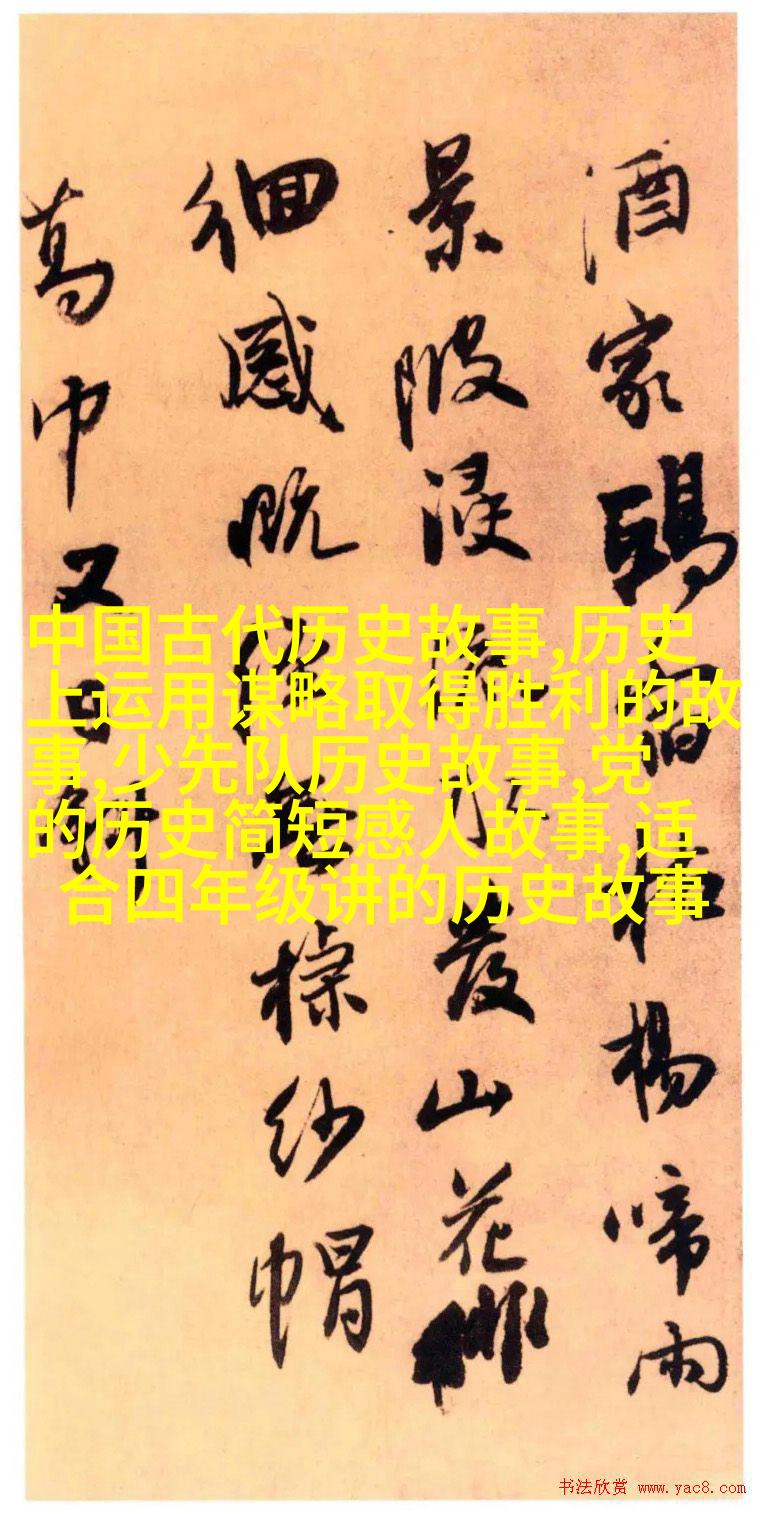 酒家鴟宿楊啼雨
景陂浸發山花
徊感慨紗帽
葛巾又日斜
中国古代历史故事,历史
上运用谋略取得胜利的故
事,少先队历史故事,党
的历史简短感人故事,适
合四年级讲的历史故事
书法欣赏 www.yac8.com